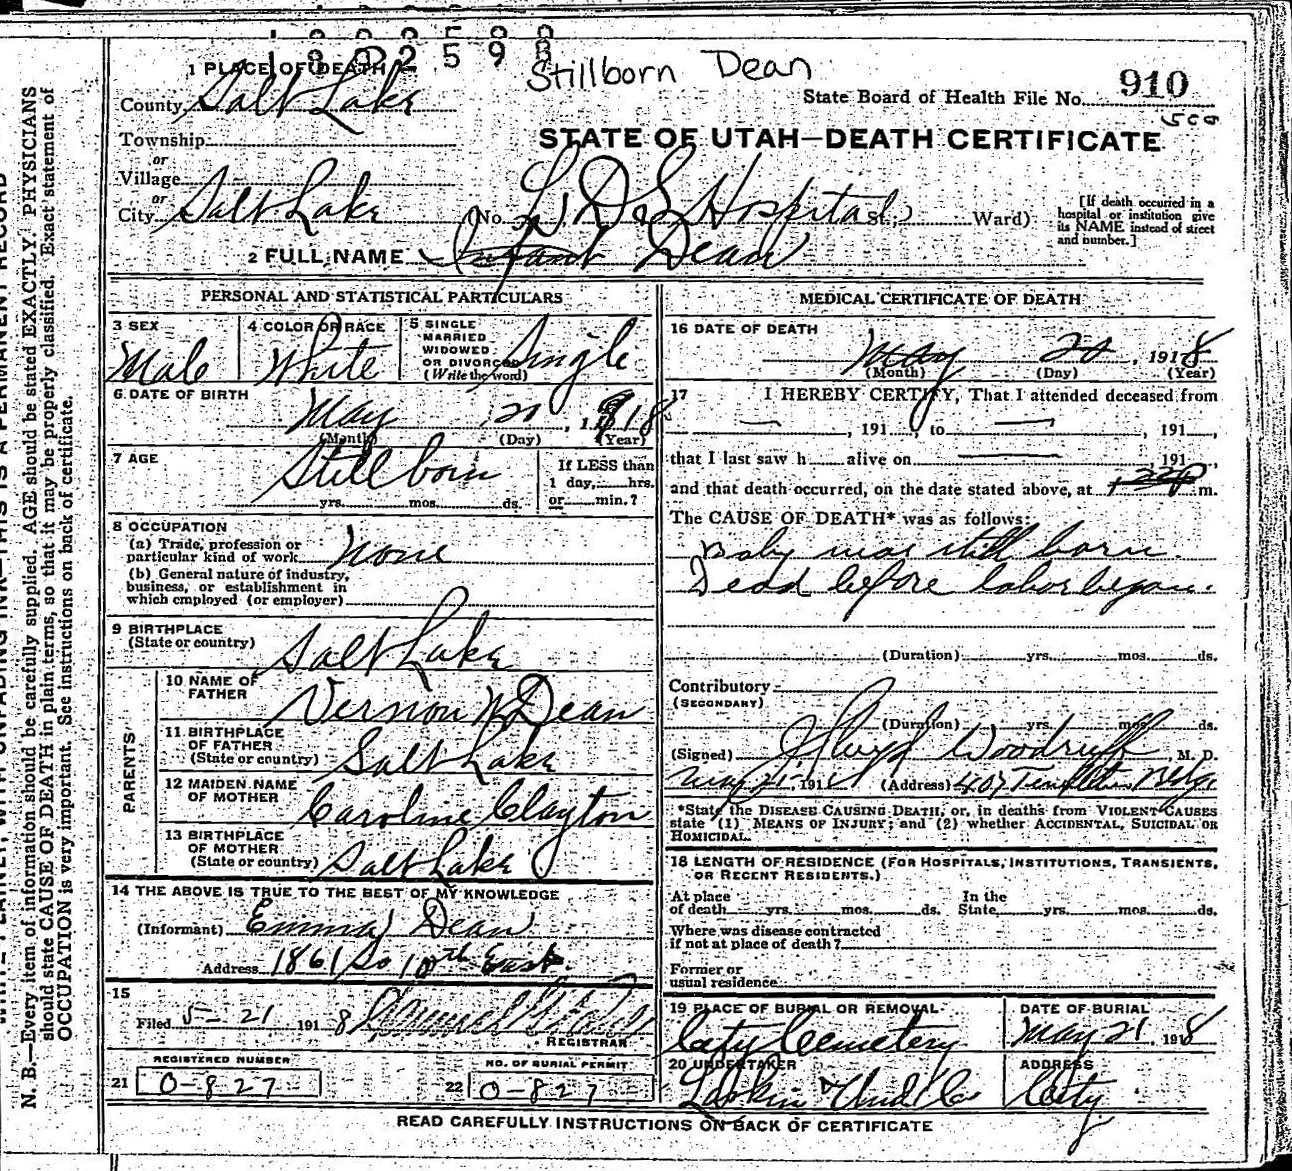 1802598
Stillborn Dean
1 PLACE OF DEATH
County Salt Lake
State Board of Health File No. 910
509
Township
STATE OF UTAH—DEATH CERTIFICATE
or
Village
or
City Salt Lake (No. L.D.S. Hospital St., Ward)
[If death occurred in a hospital or institution give its NAME instead of street and number.]
2 FULL NAME Infant Dean
PERSONAL AND STATISTICAL PARTICULARS
3 SEX
Male
4 COLOR OR RACE
White
5 SINGLE MARRIED WIDOWED OR DIVORCED
(Write the word) Single
6 DATE OF BIRTH
May 20, 1918
(Month) (Day) (Year)
7 AGE
Stillborn
yrs. mos. ds.
If LESS than
1 day, hrs.
or min.?
8 OCCUPATION
(a) Trade, profession or
particular kind of work None
(b) General nature of industry,
business, or establishment in
which employed (or employer)
9 BIRTHPLACE
(State or country) Salt Lake
PARENTS
10 NAME OF
FATHER Vernon W Dean
11 BIRTHPLACE
OF FATHER
(State or country) Salt Lake
12 MAIDEN NAME
OF MOTHER Caroline Clayton
13 BIRTHPLACE
OF MOTHER
(State or country) Salt Lake
14 THE ABOVE IS TRUE TO THE BEST OF MY KNOWLEDGE
(Informant) Emma Dean
Address 1861 So 10th East
15
Filed 5-21 1918
REGISTRAR
REGISTERED NUMBER
21 0-827
NO. OF BURIAL PERMIT
22 0-827
MEDICAL CERTIFICATE OF DEATH
16 DATE OF DEATH
May 20, 1918
(Month) (Day) (Year)
17 I HEREBY CERTIFY, That I attended deceased from
—, 191 , to —, 191 ,
that I last saw h alive on —, 191 ,
and that death occurred, on the date stated above, at m.
The CAUSE OF DEATH* was as follows:
Baby was still born.
Dead before labor began.
(Duration) yrs. mos. ds.
Contributory
(SECONDARY)
(Duration) yrs. mos. ds.
(Signed) J Lloyd Woodruff M. D.
May 21- 191 (Address) 407 Templeton Bldg.
*State the DISEASE CAUSING DEATH, or, in deaths from VIOLENT CAUSES
state (1) MEANS OF INJURY; and (2) whether ACCIDENTAL, SUICIDAL OR
HOMICIDAL.
18 LENGTH OF RESIDENCE (FOR HOSPITALS, INSTITUTIONS, TRANSIENTS,
OR RECENT RESIDENTS.)
At place
of death yrs. mos. ds.
In the
State yrs. mos. ds.
Where was disease contracted
if not at place of death?
Former or
usual residence
19 PLACE OF BURIAL OR REMOVAL
City Cemetery
DATE OF BURIAL
May 21 1918
20 UNDERTAKER
Larkin Und Co
ADDRESS
City
READ CAREFULLY INSTRUCTIONS ON BACK OF CERTIFICATE
N. B.—Every item of information should be carefully supplied. AGE should be stated EXACTLY. PHYSICIANS
should state CAUSE OF DEATH in plain terms, so that it may be properly classified. Exact statement of
OCCUPATION is very important. See instructions on back of certificate.